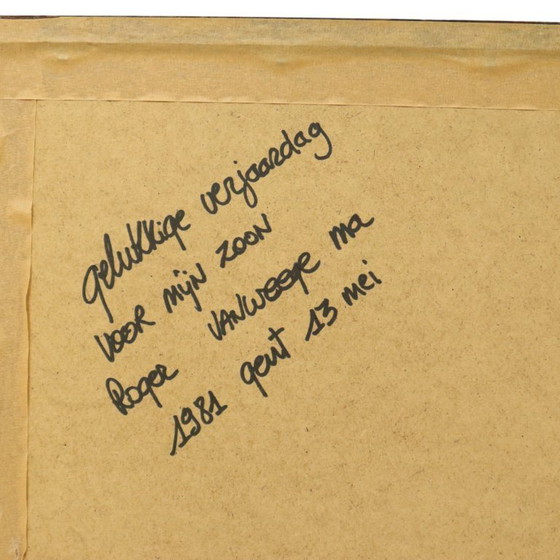 gelukkige verjaardag
voor mijn zoon
Roger VANWEEGE ma
1981 gent 13 mei